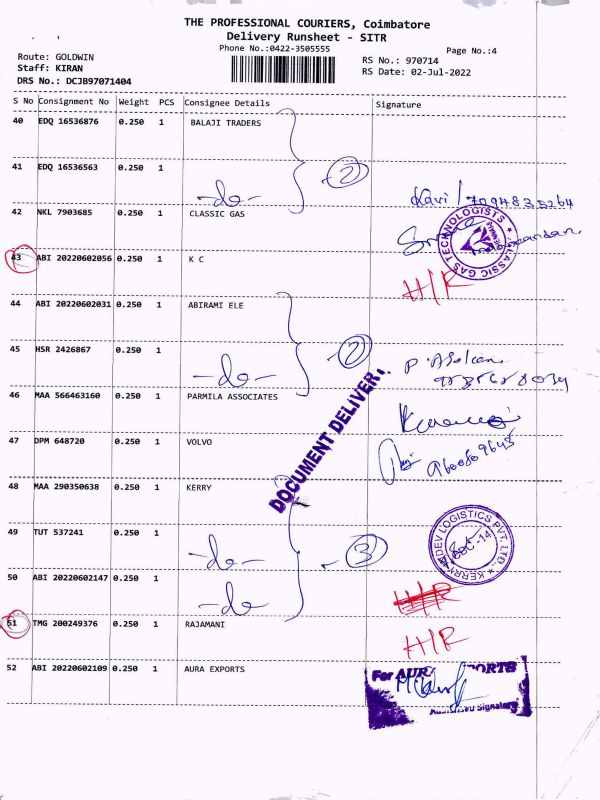 THE PROFESSIONAL COURIERS, Coimbatore
Delivery Runsheet - SITR
Phone No.:0422-3505555
Page No.:4
Route: GOLDWIN
Staff: KIRAN
DRS No.: DCJB97071404
RS No.: 970714
RS Date: 02-Jul-2022
S No Consignment No Weight PCS Consignee Details Signature
40 EDQ 16536876 0.250 1 BALAJI TRADERS
41 EDQ 16536563 0.250 1 -do- 2
42 NKL 7903685 0.250 1 CLASSIC GAS
CLASSIC GAS TECHNOLOGISTS
43 ABI 20220602056 0.250 1 K C H/R
44 ABI 20220602031 0.250 1 ABIRAMI ELE
45 HSR 2426867 0.250 1 -do- 2
46 MAA 566463160 0.250 1 PARMILA ASSOCIATES
47 DPM 648720 0.250 1 VOLVO
DOCUMENT DELIVER
48 MAA 290350638 0.250 1 KERRY
49 TUT 537241 0.250 1 -do- 3
50 ABI 20220602147 0.250 1 -do- H/R
51 TMG 200249376 0.250 1 RAJAMANI H/R
52 ABI 20220602109 0.250 1 AURA EXPORTS
For AURA